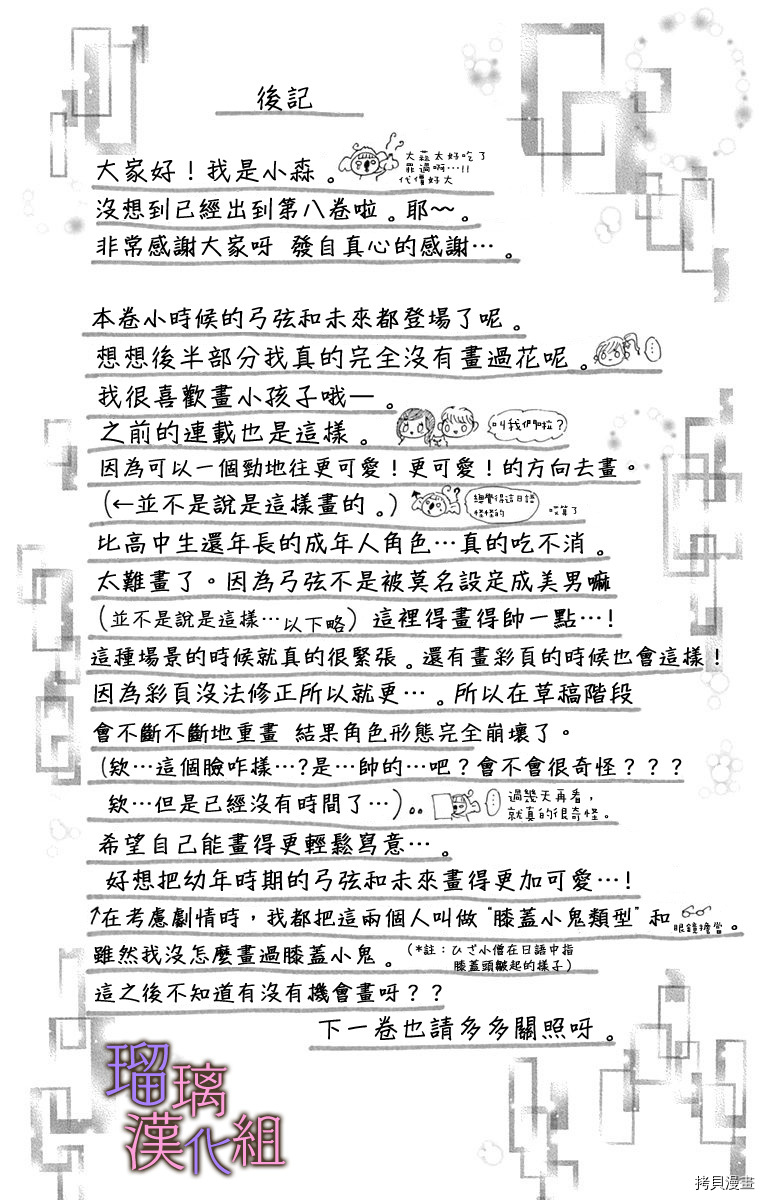 後記
大家好！我是小森。
大蒜太好吃了
罪過啊…!!
代價好大
沒想到已經出到第八卷啦。耶～。
非常感謝大家呀 發自真心的感謝…。
本卷小時候的弓弦和未來都登場了呢。
想想後半部分我真的完全沒有畫過花呢。
…
我很喜歡畫小孩子哦—。
之前的連載也是這樣。
叫我們啦？
因為可以一個勁地往更可愛！更可愛！的方向去畫。
(←並不是說是這樣畫的。)
總覺得這日語
怪怪的
哎算了
比高中生還年長的成年人角色…真的吃不消。
太難畫了。因為弓弦不是被莫名設定成美男嘛
(並不是說是這樣…以下略) 這裡得畫得帥一點…!
這種場景的時候就真的很緊張。還有畫彩頁的時候也會這樣！
因為彩頁沒法修正所以就更…。所以在草稿階段
會不斷不斷地重畫 結果角色形態完全崩壞了。
(欸…這個臉咋樣…?是…帥的…吧？會不會很奇怪？？？
欸…但是已經沒有時間了…)。。
…
過幾天再看，
就真的很奇怪。
希望自己能畫得更輕鬆寫意…。
好想把幼年時期的弓弦和未來畫得更加可愛…!
↑在考慮劇情時，我都把這兩個人叫做"膝蓋小鬼類型"和
眼鏡擔當。
雖然我沒怎麼畫過膝蓋小鬼。
(*註：ひざ小僧在日語中指
膝蓋頭皺起的樣子)
這之後不知道有沒有機會畫呀？？
下一卷也請多多關照呀。
瑠璃
漢化組
拷貝漫畫